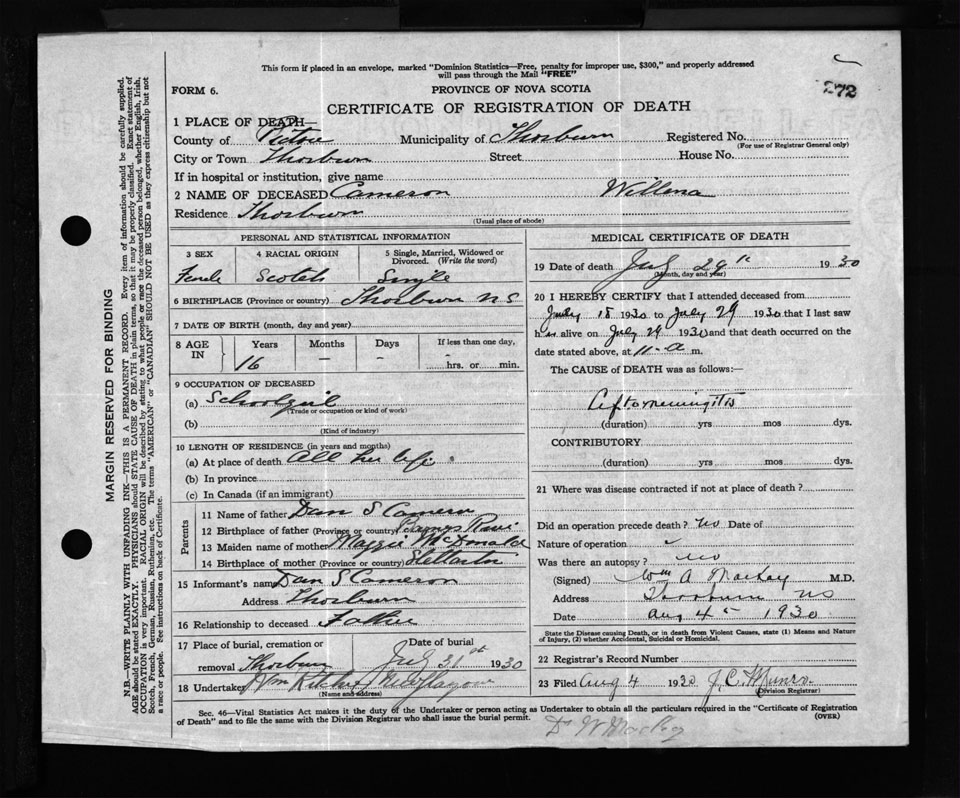 This form if placed in an envelope, marked "Dominion Statistics—Free, penalty for improper use, $300," and properly addressed
will pass through the Mail "FREE"
272
FORM 6.
PROVINCE OF NOVA SCOTIA
CERTIFICATE OF REGISTRATION OF DEATH
1 PLACE OF DEATH—
County of Pictou Municipality of Thorburn Registered No.
(For use of Registrar General only)
City or Town Thorburn Street House No.
If in hospital or institution, give name
2 NAME OF DECEASED Cameron Willena
Residence Thorburn
(Usual place of abode)
PERSONAL AND STATISTICAL INFORMATION
3 SEX 4 RACIAL ORIGIN 5 Single, Married, Widowed or Divorced. (Write the word)
Female Scotch Single
6 BIRTHPLACE (Province or country) Thorburn N S
7 DATE OF BIRTH (month, day and year)
8 AGE IN Years Months Days If less than one day,
16 — — hrs. or min.
9 OCCUPATION OF DECEASED
(a) Schoolgirl
(Trade or occupation or kind of work)
(b)
(Kind of industry)
10 LENGTH OF RESIDENCE (in years and months)
(a) At place of death All her life
(b) In province
(c) In Canada (if an immigrant)
Parents
11 Name of father Dan S Cameron
12 Birthplace of father (Province or country) Barneys River
13 Maiden name of mother Maggie McDonald
14 Birthplace of mother (Province or country) Stellarton
15 Informant's name Dan S Cameron
Address Thorburn
16 Relationship to deceased Father
17 Place of burial, cremation or Date of burial
removal Thorburn July 31st 1930
18 Undertaker New Glasgow
(Name and address)
MEDICAL CERTIFICATE OF DEATH
19 Date of death July 29th 1930
(Month, day and year)
20 I HEREBY CERTIFY that I attended deceased from
July 18 1930 to July 29 1930 that I last saw
her alive on July 29 1930 and that death occurred on
date stated above, at 11-a m.
The CAUSE of DEATH was as follows:—
(duration) yrs mos dys.
CONTRIBUTORY
(duration) yrs mos dys.
21 Where was disease contracted if not at place of death?
Did an operation precede death? No Date of
Nature of operation
Was there an autopsy? No
(Signed) Wm A Mackay M.D.
Address Thorburn NS
Date Aug 4th 1930
State the Disease causing Death, or in death from Violent Causes, state (1) Means and Nature
of Injury, (2) whether Accidental, Suicidal or Homicidal.
22 Registrar's Record Number
23 Filed Aug 4 1930 J. C. Munro
(Division Registrar)
Sec. 46—Vital Statistics Act makes it the duty of the Undertaker or person acting as Undertaker to obtain all the particulars required in the "Certificate of Registration
of Death" and to file the same with the Division Registrar who shall issue the burial permit.
(OVER)
MARGIN RESERVED FOR BINDING
N.B.—WRITE PLAINLY WITH UNFADING INK—THIS IS A PERMANENT RECORD. Every item of information should be carefully supplied.
AGE should be stated EXACTLY. PHYSICIANS should STATE CAUSE OF DEATH in plain terms, so that it may be properly classified. Exact statement of
OCCUPATION is very important. RACIAL ORIGIN will be described by stating to what people or race the deceased person belonged, whether English, Irish,
Scotch, French, German, Russian, Ruthenian, etc. The terms "AMERICAN" or "CANADIAN" SHOULD NOT BE USED as they express citizenship but not
a race or people. See instructions on back of Certificate.